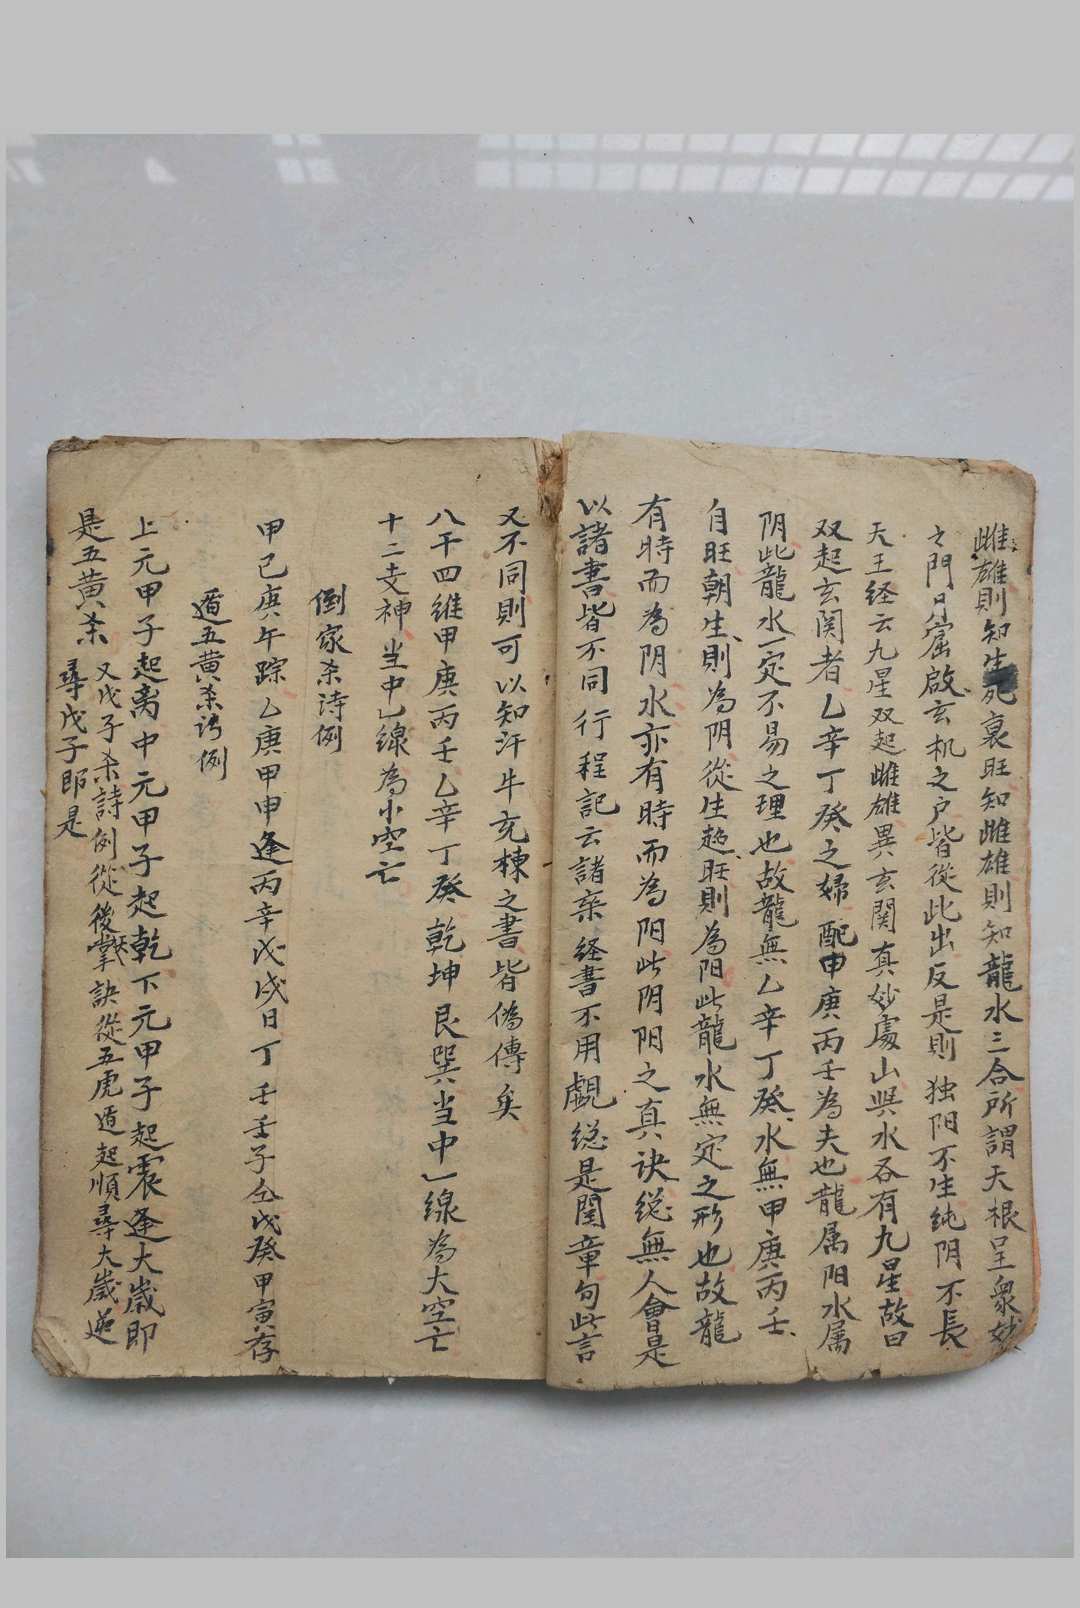 雌雄則知生死衰旺知雌雄則知龍水三合所謂天根呈衆妙
之門月窟啟玄机之户皆從此出反是則独阳不生纯阴不長
天王经云九星双起雌雄異玄関真妙處山與水各有九星故曰
双起玄関者乙辛丁癸之婦配甲庚丙壬為夫也龍属阳水属
阴此龍水一定不易之理也故龍無乙辛丁癸水無甲庚丙壬
自旺朝生則為阴從生趨旺則為阳此龍水無定之形也故龍
有時而為阴水亦有時而為阳此阴阳之真诀総無人會是
以諸書皆不同行程記云諸家经書不用覷総是閏章句此言
又不同則可以知汗牛充棟之書皆偽傳矣
八干四維甲庚丙壬乙辛丁癸乾坤艮巽当中一線為大空亡
十二支神当中一線為小空亡
倒家杀诗例
甲己庚午踪乙庚甲申逢丙辛戊戌日丁壬壬子仝戊癸甲寅存
遁五黄杀诗例
上元甲子起离中元甲子起乾下元甲子起震逢大歲即
是五黄杀 又戊子杀詩例從後掌訣從五虎遁起順尋大歲逆
尋戊子即是